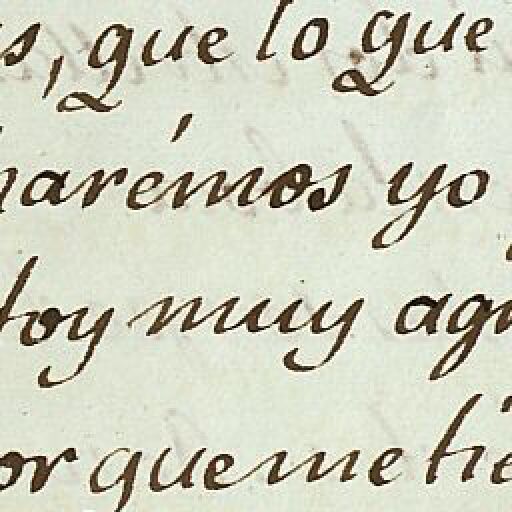 s, que lo que
harémos yo
toy muy agr
or que me tie